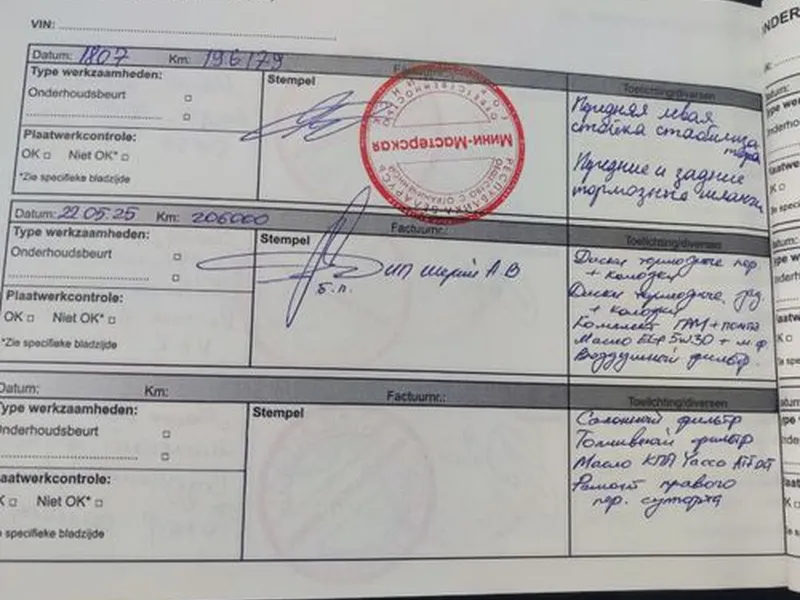 VIN:
Datum: 1807 Km: 196179
Type werkzaamheden:
Onderhoudsbeurt
Plaatwerkcontrole:
OK Niet OK*
*Zie specifieke bladzijde
Stempel
Мини-Мастерская
РЕСПУБЛИКА БЕЛАРУСЬ
Toelichting/diversen
Передняя левая
стойка стабилиза
тора
Передние и задние
тормозные шланги
Datum: 22.05.25 Km: 206000
Factuurnr.:
Type werkzaamheden:
Onderhoudsbeurt
Plaatwerkcontrole:
OK Niet OK*
*Zie specifieke bladzijde
Stempel
ИП А.В
б.п.
Toelichting/diversen
Диски тормозные пер.
+ колодки
Диски тормозные зад.
+ колодки
Комплект ГРМ + помпа
Масло 5w30 + м.ф
Воздушный фильтр.
Datum: Km:
Factuurnr.:
Type werkzaamheden:
Onderhoudsbeurt
Plaatwerkcontrole:
OK Niet OK*
Zie specifieke bladzijde
Stempel
Toelichting/diversen
Салонный фильтр
Топливный фильтр
Масло КПП Yacco
Ремонт правого
пер. суппорта